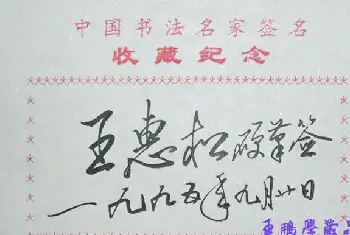 中国书法名家签名
收藏纪念
王惠松硬笔签
一九九五年九月廿日
王鹏學藏品